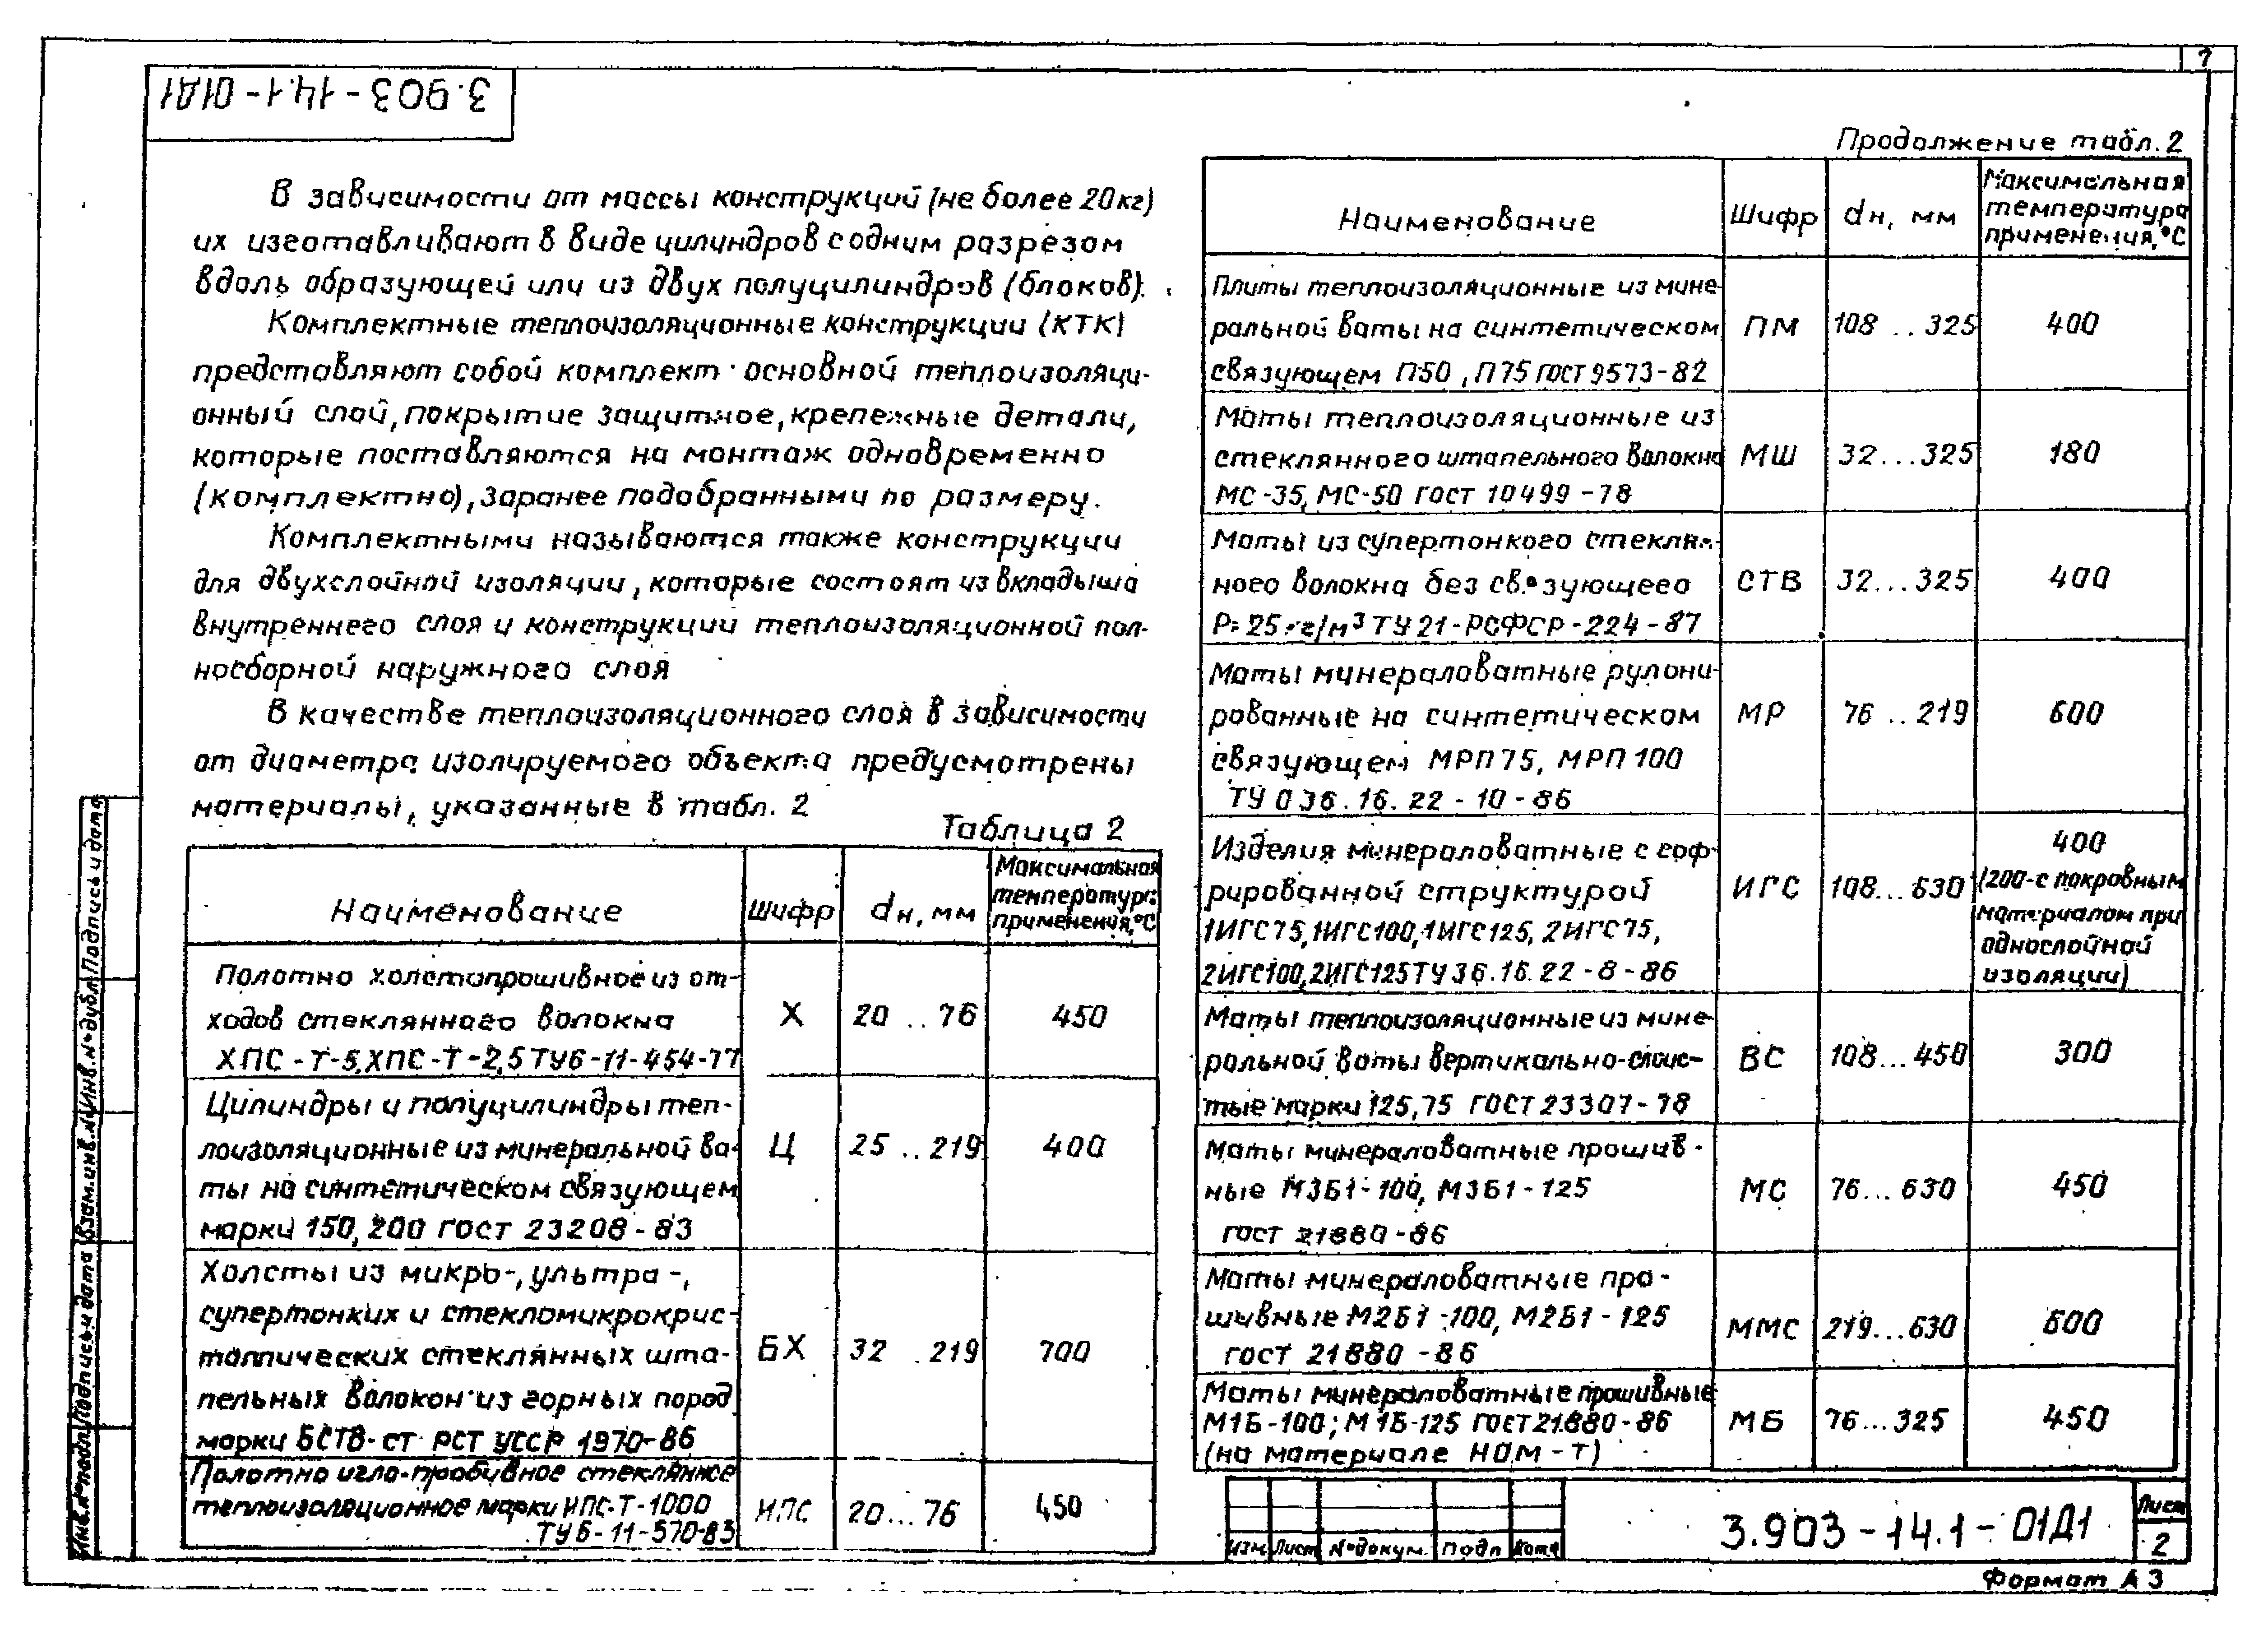 7
3.903-14.1-01Д1
В зависимости от массы конструкций (не более 20кг)
их изготавливают в виде цилиндров с одним разрезом
вдоль образующей или из двух полуцилиндров (блоков).
Комплектные теплоизоляционные конструкции (КТК)
представляют собой комплект основной теплоизоляци-
онный слой, покрытие защитное, крепежные детали,
которые поставляются на монтаж одновременно
(комплектно), заранее подобранными по размеру.
Комплектными называются также конструкции
для двухслойной изоляции, которые состоят из вкладыша
внутреннего слоя и конструкции теплоизоляционной пол-
носборной наружного слоя
В качестве теплоизоляционного слоя в зависимости
от диаметра изолируемого объекта предусмотрены
материалы, указанные в табл. 2
Таблица 2
Наименование
Шифр
dн, мм
Максимальная
температура
применения,°С
Полотно холстопрошивное из от-
ходов стеклянного волокна
ХПС-Т-5, ХПС-Т-2,5 ТУ6-11-454-77
Х
20 .. 76
450
Цилиндры и полуцилиндры теп-
лоизоляционные из минеральной ва-
ты на синтетическом связующем
марки 150, 200 ГОСТ 23208-83
Ц
25 .. 219
400
Холсты из микро-, ультра-,
супертонких и стекломикрокрис-
таллических стеклянных шта-
пельных волокон из горных пород
марки БСТВ-ст РСТ УССР 1970-86
БХ
32 . 219
700
Полотно игло-пробивное стеклянное
теплоизоляционное марки ИПС-Т-1000
ТУ6-11-570-83
ИПС
20...76
450
Продолжение табл. 2
Наименование
Шифр
dн, мм
Максимальная
температура
применения,°С
Плиты теплоизоляционные из мине-
ральной ваты на синтетическом
связующем П50, П75 ГОСТ 9573-82
ПМ
108 .. 325
400
Маты теплоизоляционные из
стеклянного штапельного волокна
МС-35, МС-50 ГОСТ 10499-78
МШ
32...325
180
Маты из супертонкого стеклян-
ного волокна без связующего
Р=25кг/м³ ТУ21-РСФСР-224-87
СТВ
32...325
400
Маты минераловатные рулони-
рованные на синтетическом
связующем МРП75, МРП100
ТУ 036.16.22-10-86
МР
76 .. 219
600
Изделия минераловатные с гоф-
рированной структурой
1ИГС75, 1ИГС100, 1ИГС125, 2ИГС75,
2ИГС100, 2ИГС125 ТУ36.16.22-8-86
ИГС
108...630
400
(200-с покровным
материалом при
однослойной
изоляции)
Маты теплоизоляционные из мине-
ральной ваты вертикально-слоис-
тые марки 125, 75 ГОСТ 23307-78
ВС
108...450
300
Маты минераловатные прошив-
ные М3Б1-100, М3Б1-125
ГОСТ 21880-86
МС
76...630
450
Маты минераловатные про-
шивные М2Б1-100, М2Б1-125
ГОСТ 21880-86
ММС
219...630
600
Маты минераловатные прошивные
М1Б-100; М1Б-125 ГОСТ 21880-86
(на материале НОМ-Т)
МБ
76...325
450
Изм. Лист №докум. Подп Дата
3.903-14.1-01Д1
Лист
2
Формат А3
Инв.№подл. Подпись и дата Взам.инв.№ Инв.№дубл. Подпись и дата